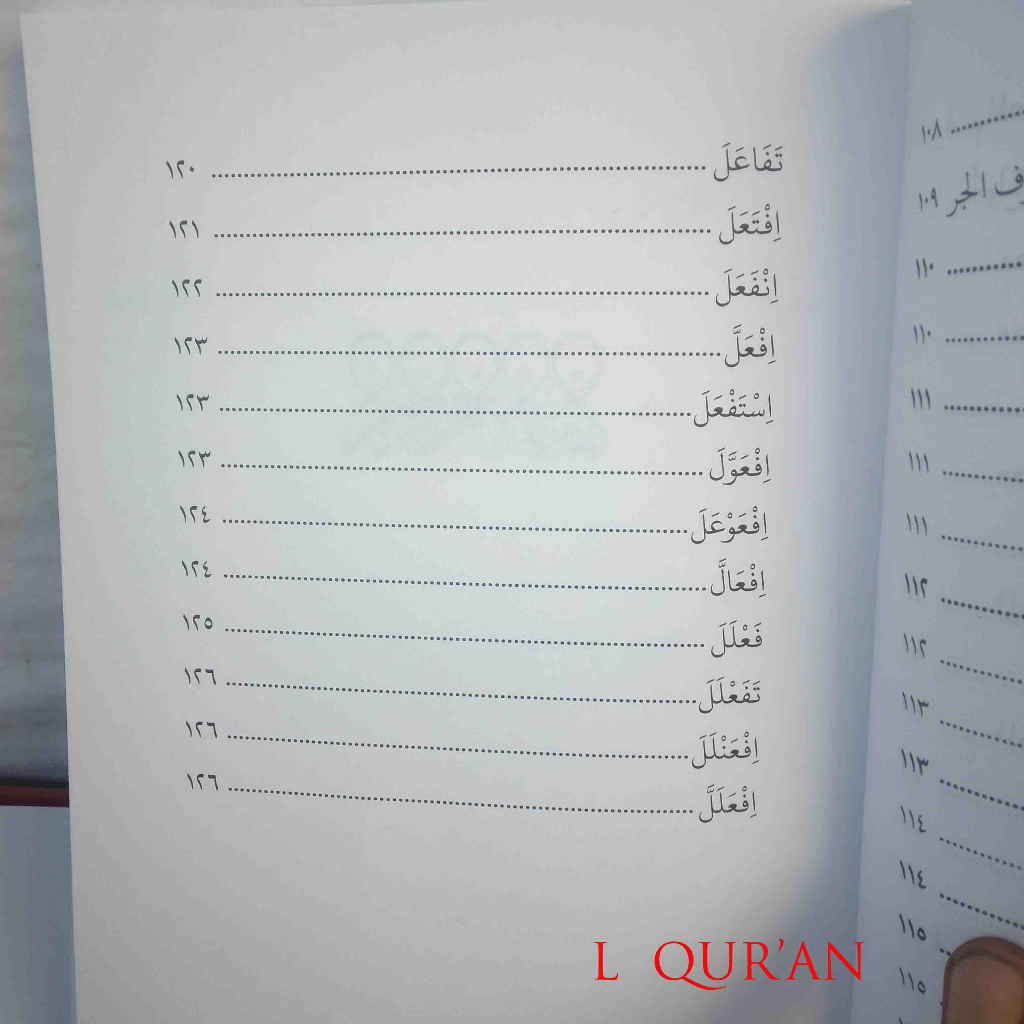 تَفَاعَلَ ........................ ١٢٠
اِفْتَعَلَ ........................ ١٢١
اِنْفَعَلَ ........................ ١٢٢
اِفْعَلَّ ........................ ١٢٣
اِسْتَفْعَلَ ........................ ١٢٣
اِفْعَوَّلَ ........................ ١٢٣
اِفْعَوْعَلَ ........................ ١٢٤
اِفْعَالَّ ........................ ١٢٤
فَعْلَلَ ........................ ١٢٥
تَفَعْلَلَ ........................ ١٢٦
اِفْعَنْلَلَ ........................ ١٢٦
اِفْعَلَلَّ ........................ ١٢٦
١٠٨
الجر ١٠٩
١١٠
١١٠
١١١
١١١
١١١
١١٢
١١٢
١١٣
١١٣
١١٤
١١٤
١١٥
١١٥
L QUR'AN